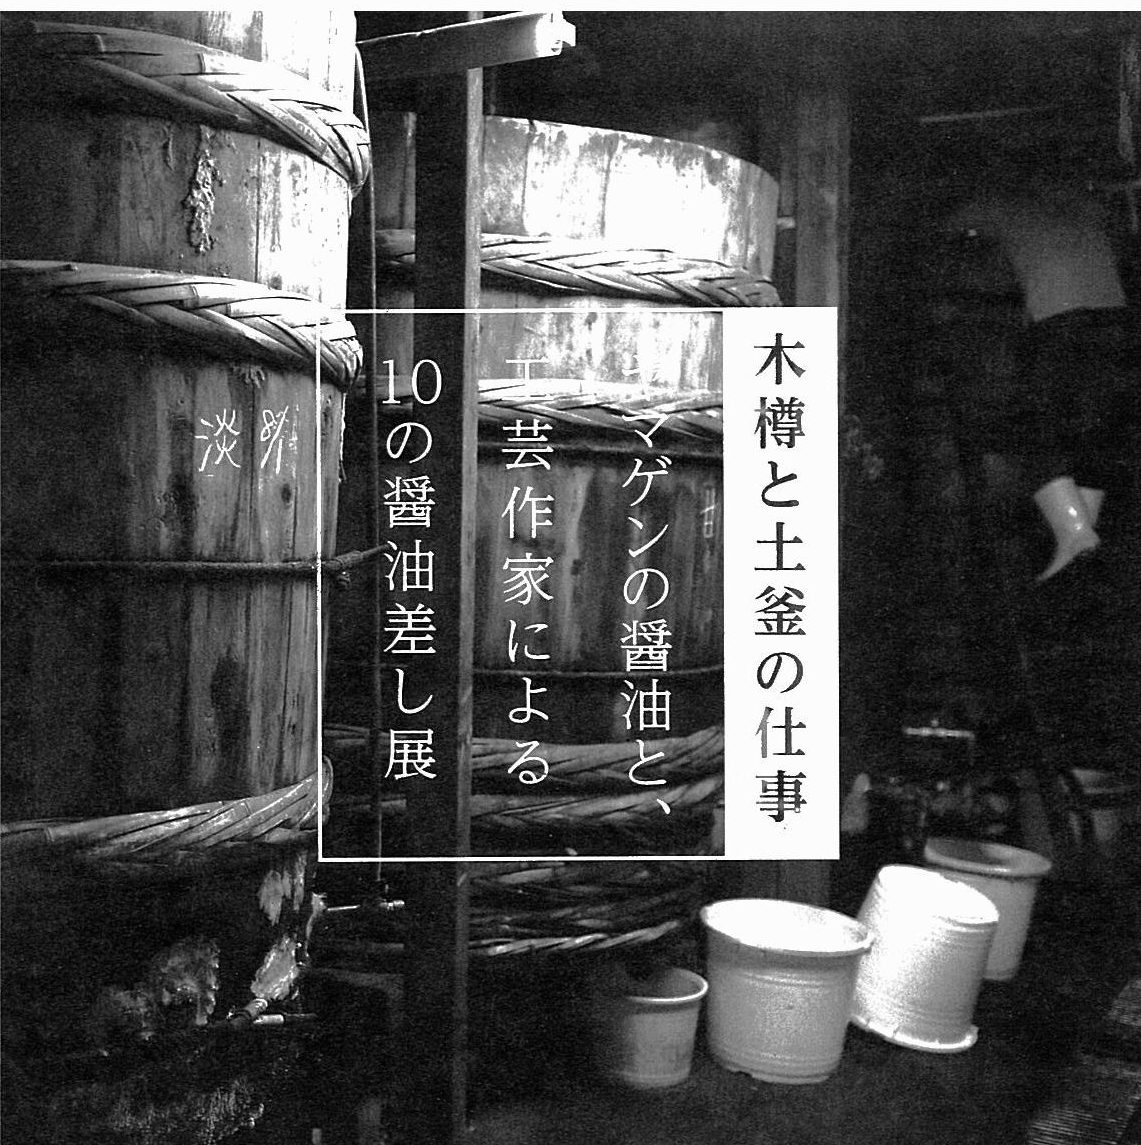 木樽と土釜の仕事
ヤマゲンの醤油と、
工芸作家による
10の醤油差し展
淡